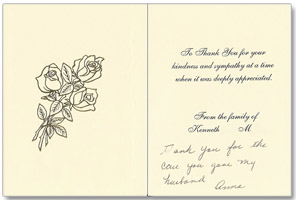 To Thank You for your
kindness and sympathy at a time
when it was deeply appreciated.
From the family of
Kenneth M
Thank you for the
care you gave my
husband
Anna